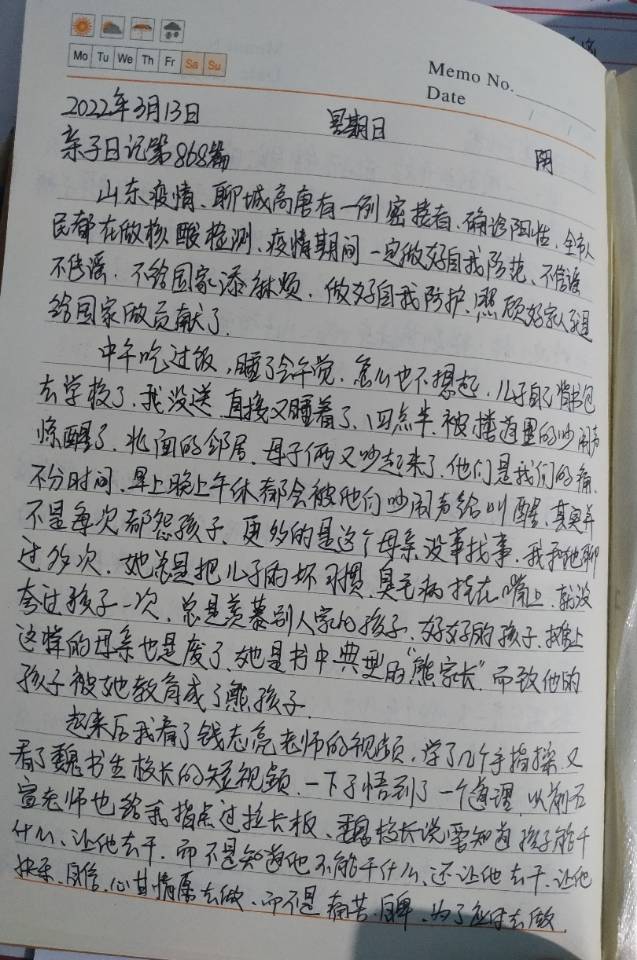 Mo Tu We Th Fr Sa Su
Memo No.
Date
2022年3月13日 星期日
亲子日记第868篇 阴
山东疫情、聊城高唐有一例密接者、确诊阳性、全市人
民都在做核酸检测、疫情期间一定做好自我防范、不信谣
不传谣、不给国家添麻烦、做好自我防护、照顾好家人就是
给国家做贡献了.
中午吃过饭、睡了会午觉、怎么也不想起、儿子自己背书包
去学校了、我没送、直接又睡着了、四点半、被楼道里的吵闹声
惊醒了、北面的邻居、母子俩又吵起来了、他们是我们的痛、
不分时间、早上晚上午休都会被他们吵闹声给叫醒、其实并
不是每次都怨孩子、更多的是这个母亲没事找事、我和她聊
过多次、她总是把儿子的坏习惯、臭毛病挂在嘴上、就没
夸过孩子一次、总是羡慕别人家的孩子、好好的孩子、摊上
这样的母亲也是废了、她是书中典型的“熊家长”、而致他的
孩子被她教育成了熊孩子.
起来后我看了钱志亮老师的视频、学了几个手指操、又
看了魏书生校长的短视频、一下子悟到了一个道理、以前石
宣老师也给我指点过拉长板、魏校长说要知道孩子能干
什么、让他去干、而不是知道他不能干什么、还让他去干、让他
快乐、自信、心甘情愿去做、而不是痛苦、自卑、为了应付去做.